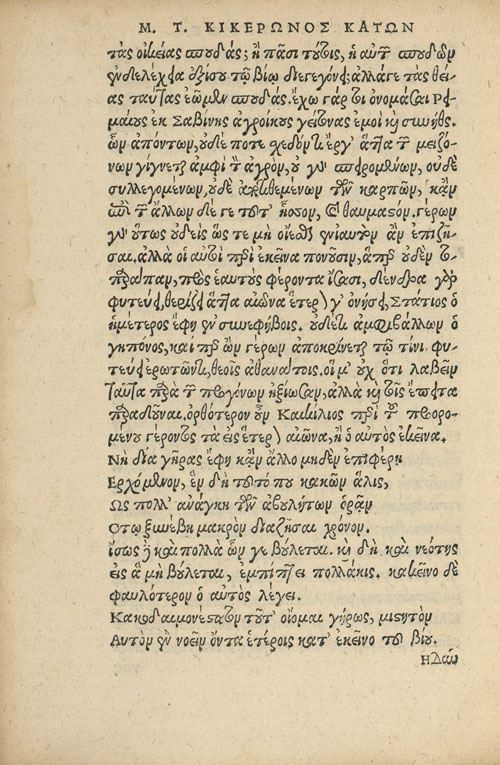 Μ. Τ. ΚΙΚΕΡΩΝΟΣ ΚΑΤΩΝ
τὰς οἰκείας σπουδάς; ἢ πᾶσι τούτοις, ἡ αὐτὴ σπουδῶν
τῷ βίῳ διεγεγόνει; ἀλλά γε τὰς θεί-
ας ταύτας ἐῶμεν σπουδάς. ἔχω γάρ τοι ὀνομάσαι Ρω-
μαίους ἐκ Σαβίνης ἀγροίκους γείτονας ἐμοὶ καὶ συνήθεις.
ὧν ἀπόντων, οὐδέ ποτε σχεδόν τι ἔργ' ἄττα τῶν μειζό-
νων γίγνεται ἀμφὶ τὸν ἀγρὸν, οὐ γοῦν σπειρομένων, οὐδὲ
συλλεγομένων, οὐδὲ ἀποτιθεμένων τῶν καρπῶν, κἂν
ἐπὶ τῶν ἄλλων δέ γε τοῦτ' ἧσσον, ἐστὶ θαυμαστόν. γέρων
γὰρ οὕτως οὐδεὶς ὥς τε μὴ οἴεσθαι ἐνιαυτὸν ἂν ἐπιζῆ-
σαι. ἀλλὰ οἱ αὐτοὶ περὶ ἐκεῖνα πονοῦσιν, ἅπερ οὐδὲν το-
παράπαν, πρὸς ἑαυτοὺς φέροντα ἴσασι, δένδρα γὰρ
φυτεύει, θερίζει ἄττα αἰῶνα ἕτερον γ' ὀνήσει, Στάτιος ὁ
ἡμέτερος ἔφη ἐν συνεφήβοις. οὐδέ τι ἀμφιβάλλων ὁ
γηπόνος, καί περ ὢν γέρων ἀποκρίνεται τῷ τίνι φυ-
τεύει ἐρωτῶντι, θεοῖς ἀθανάτοις. οἵ μ' οὐχ ὅτι λαβεῖν
ταῦτα παρὰ τῶν προγόνων ἠξίωσαν, ἀλλὰ καὶ τοῖς ἔπειτα
παραδοῦναι. ὀρθότερον οὖν Καικίλιος περὶ τοῦ προορο-
μένου γέροντος τὰ εἰς ἕτερον αἰῶνα, ἢ ὁ αὐτὸς ἐκεῖνα.
Νὴ δία γῆρας ἔφη κἂν ἄλλο μηδὲν ἐπιφέρῃ
Ερχόμενον, ἓν δὴ τοῦτό που κακῶν ἅλις,
Ως πολλ' ἀνάγκη τῶν ἀβουλήτων ὁρᾶν
Οτῳ ξυνέβη μακρὸν διαζῆσαι χρόνον.
ἴσως δὲ καὶ πολλὰ ὧν γε βούλεται. καὶ δὴ καὶ νεότης
εἰς ἃ μὴ βούλεται, ἐμπίπτει πολλάκις. κακεῖνο δὲ
φαυλότερον ὁ αὐτὸς λέγει.
Κακοδαιμονέστατον τοῦτ' οἴομαι γήρως, μισητὸν
Αὐτὸν ἐν νοεῖν ὄντα ἑτέροις κατ' ἐκεῖνο τοῦ βίου.
ΗΔαύ